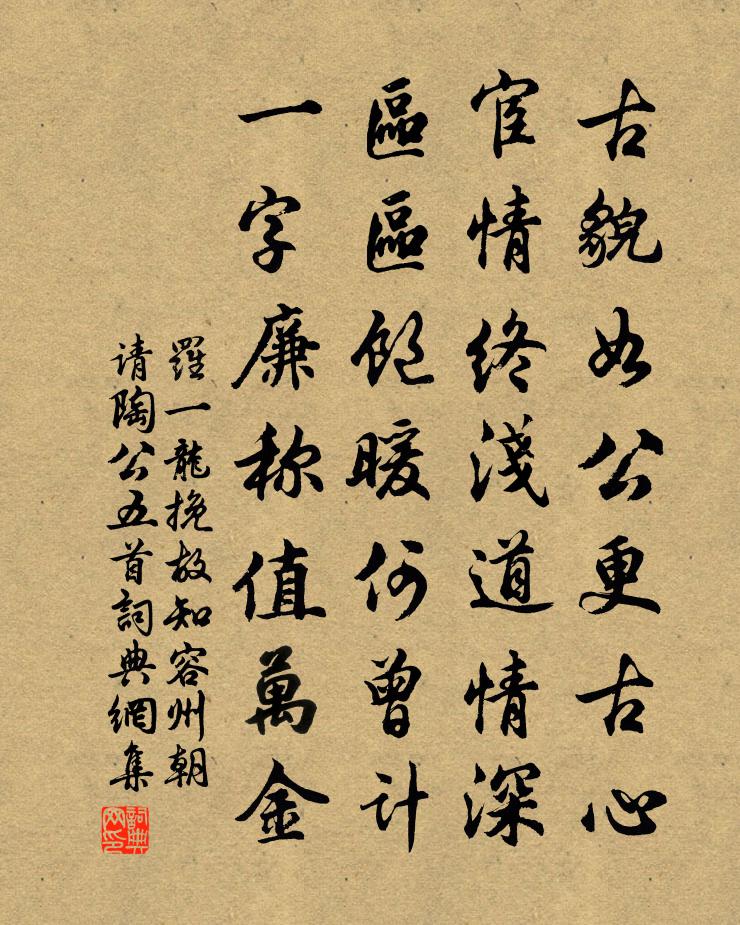 古貌如公更古心
宦情終淺道情深
區區飽暖何曾计
一字廉称值萬金
羅一龍挽故知容州朝
请陶公五首詞典網集
詞典網印